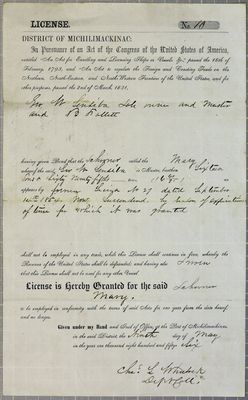 LICENSE. No 10
DISTRICT OF MICHILIMACKINAC:
In Pursuance of an Act of the Congress of the United States of America,
entitled "An Act for Enrolling and Licensing Ships or Vessels, &c." passed the 18th of
February, 1793, and "An Act to regulate the Foreign and Coasting Trade on the
Northern, North-Eastern, and North-Western Frontiers of the United States, and for
other purposes, passed the 2nd of March, 1831.
Geo W. Sole owner and Master
and
having given Bond that the Schooner called the Mary
whereof the said Geo W. is Master, burthen Sixteen
Tons & Ninety fifths
as appears former License No 27 dated September
1854 Now Surrendered by reason of expiration
of time for which it was granted
shall not be employed in any trade, while this License shall continue in force, whereby the
Revenue of the United States shall be defrauded; and having also Sworn
that this License shall not be used for any other Vessel
License is Hereby Granted for the said Schooner
Mary,
to be employed in conformity with the terms of said Acts for one year from the date hereof,
and no longer.
Given under my Hand and Seal of Office, at the Port of Michilimackinac,
in the said District, the Ninth day of May
in the year one thousand eight hundred and fifty Six
Chas L.
Dept Coll.